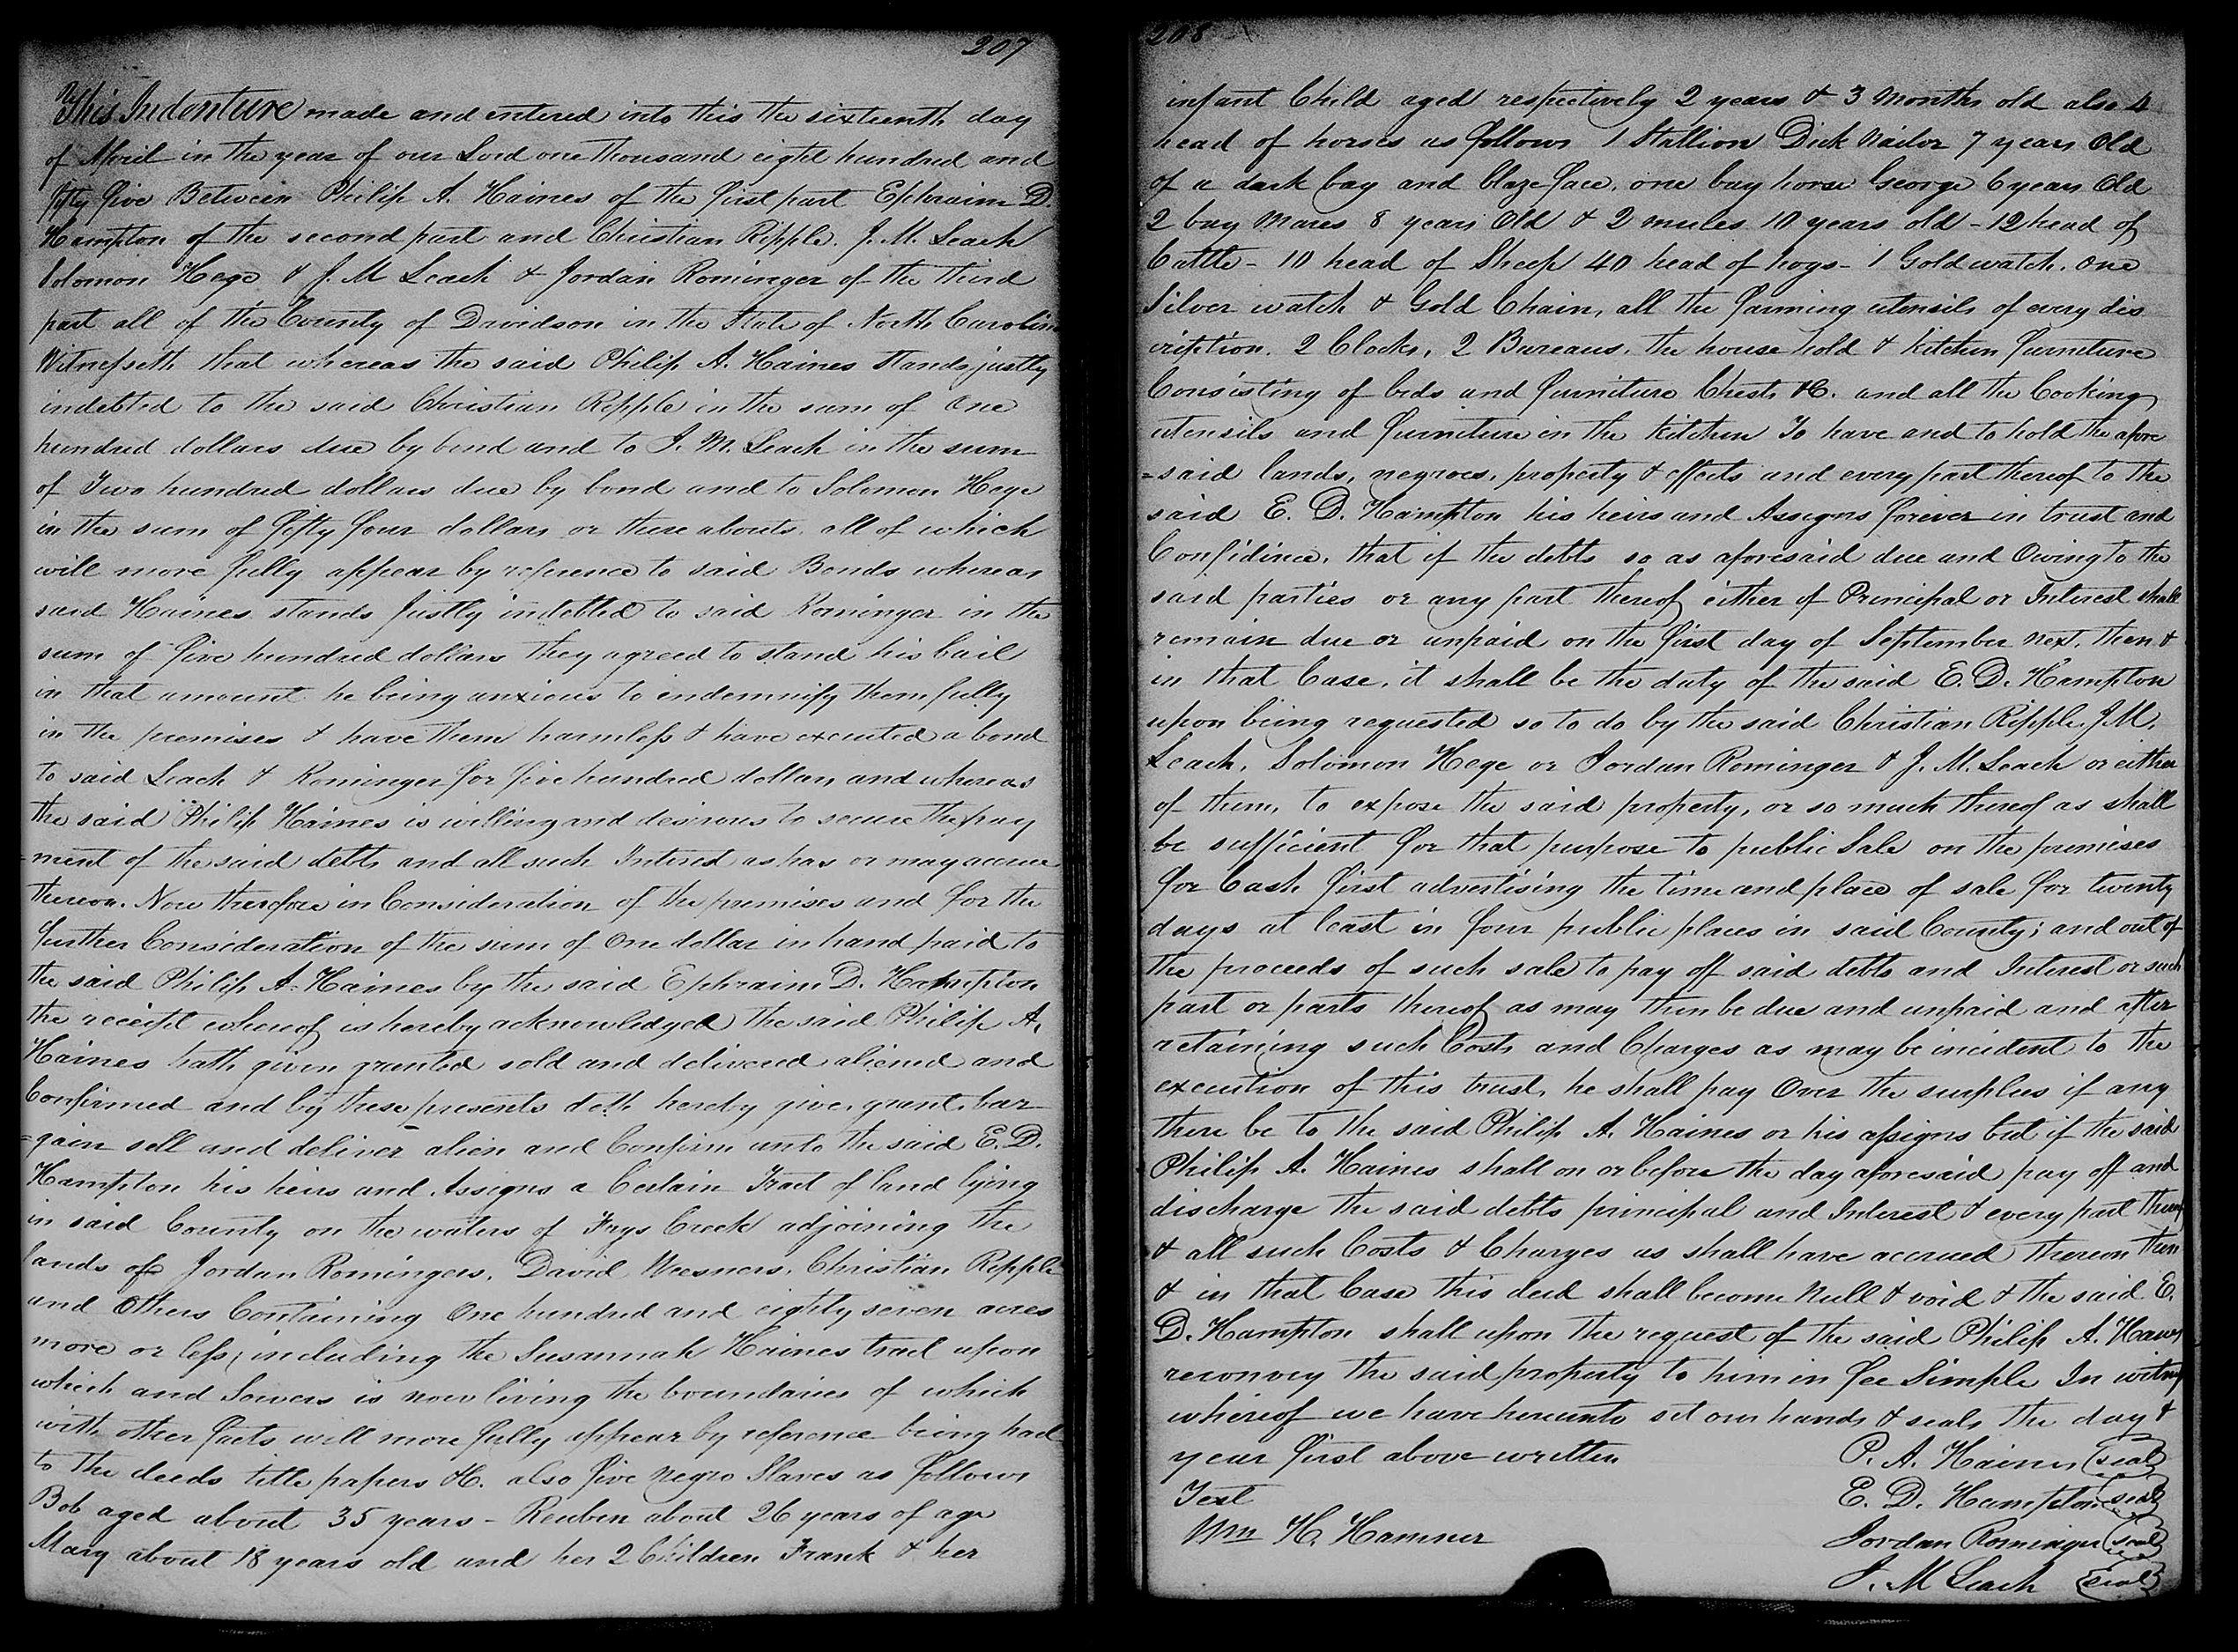 207
This Indenture made and entered into this the sixteenth day
of April in the year of our Lord one thousand eight hundred and
fifty five Between Philip A. Haines of the first part Ephraim D.
Hampton of the second part and Christian Ripple. J. M. Leach
Solomon Hege & J. M Leach & Jordan Rominger of the third
part all of the County of Davidson in the State of North Carolina
Witnesseth that whereas the said Philip A. Haines stands justly
indebted to the said Christian Ripple in the sum of One
hundred dollars due by bond and to J. M. Leach in the sum
of Two hundred dollars due by bond and to Solomon Hege
in the sum of fifty four dollars or there abouts. all of which
will more fully appear by reference to said Bonds whereas
said Haines stands justly indebted to said Rominger in the
sum of five hundred dollars they agreed to stand his bail
in that amount he being anxious to indemnify them fully
in the premises & have them harmless & have executed a bond
to said Leach & Rominger for five hundred dollars and whereas
the said Philip Haines is willing and desirous to secure the pay
=ment of the said debts and all such Interest as has or may accrue
thereon. Now therefore in Consideration of the premises and for the
further Consideration of the sum of One dollar in hand paid to
the said Philip A. Haines by the said Ephraim D. Hampton
the receipt whereof is hereby acknowledged the said Philip A.
Haines hath given granted sold and delivered aliened and
Confirmed and by these presents doth hereby give, grant, bar
=gain sell and deliver alien and Confirm unto the said E. D.
Hampton his heirs and Assigns a Certain Tract of land lying
in said County on the waters of Frys Creek adjoining the
lands of Jordan Romingers, David Weesners, Christian Ripple
and Others Containing One hundred and eighty seven acres
more or less, including the Susannah Haines tract upon
which and Sowers is now living the boundaries of which
with other facts will more fully appear by reference being had
to the deeds title papers &C. also five negro Slaves as follows
Bob aged about 35 years - Reuben about 26 years of age
Mary about 18 years old and her 2 Children Frank & her
208
infant Child aged respectively 2 years & 3 Months old also 4
head of horses as follows 1 Stallion Dick Nailor 7 years Old
of a dark bay and blaze face, one bay horse George 6 years Old
2 bay Mares 8 years Old & 2 mules 10 years old - 12 head of
Cattle - 10 head of Sheep 40 head of hogs - 1 Gold watch. One
Silver watch & Gold Chain, all the farming utensils of every dis
cription. 2 Clocks, 2 Bureaus, the house hold & Kitchen furniture
Consisting of beds and furniture Chests &C. and all the Cooking
utensils and furniture in the Kitchen To have and to hold the afore
=said lands, negroes, property & effects and every part thereof to the
said E. D. Hampton his heirs and Assigns forever in trust and
Confidince, that if the debts so as aforesaid due and Owing to the
said parties or any part thereof either of Principal or Interest shall
remain due or unpaid on the first day of September next, then &
in that Case, it shall be the duty of the said E. D. Hampton
upon being requested so to do by the said Christian Ripple, J M.
Leach, Solomon Hege or Jordan Rominger & J. M. Leach or either
of them, to expose the said property, or so much thereof as shall
be sufficient for that purpose to public Sale on the premises
for Cash first advertising the time and place of sale for twenty
days at least in four public places in said County; and out of
the proceeds of such sale to pay off said debts and Interest or such
part or parts thereof as may then be due and unpaid and after
retaining such Costs and Charges as may be incident to the
execution of this trust, he shall pay Over the surplus if any
there be to the said Philip A. Haines or his assigns but if the said
Philip A. Haines shall on or before the day aforesaid pay off and
discharge the said debts principal and Interest & every part thereof
& all such Costs & Charges as shall have accrued thereon then
& in that Case this deed shall become Null & void & the said E.
D. Hampton shall upon the request of the said Philip A. Haines
reconvey the said property to him in fee Simple In witness
whereof we have hereunto set our hands & seals the day &
year first above written P. A. Haines (seal)
Test E. D. Hampton (seal)
Wm H. Hamner Jordan Rominger (seal)
J. M Leach (seal)